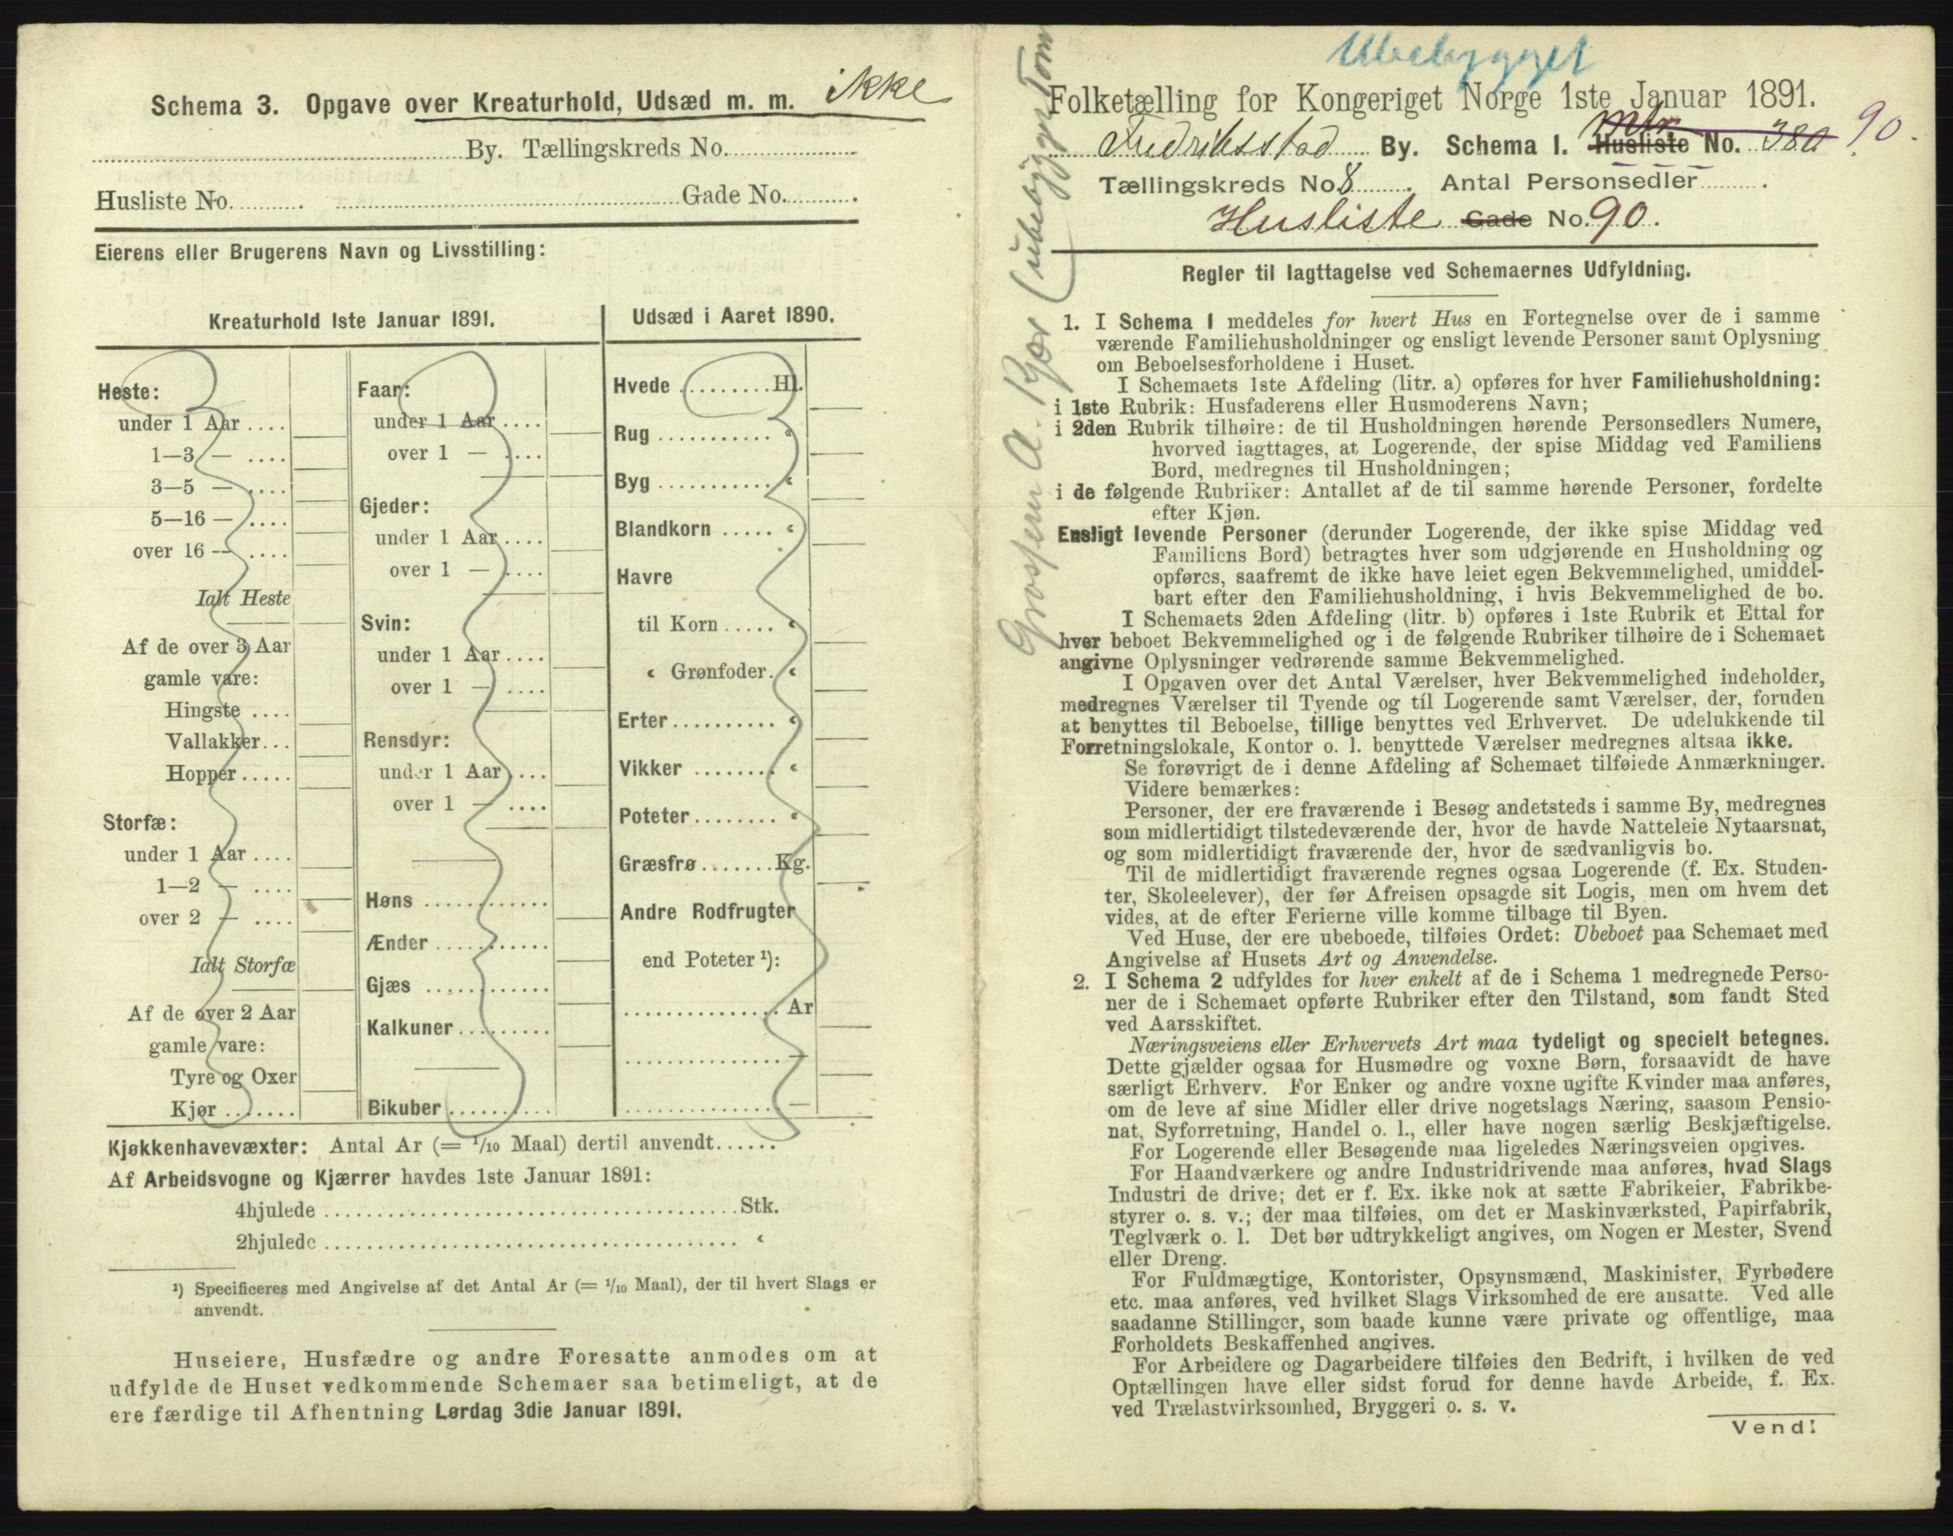 Schema 3. Opgave over Kreaturhold, Udsæd m. m. ikke
By. Tællingskreds No.
Husliste No. Gade No.
Eierens eller Brugerens Navn og Livsstilling:
Kreaturhold 1ste Januar 1891.
Heste:
under 1 Aar
1—3 —
3—5 —
5—16 —
over 16 —
Ialt Heste
Af de over 3 Aar
gamle vare:
Hingste
Vallakker
Hopper
Storfæ:
under 1 Aar
1—2 —
over 2 —
Ialt Storfæ
Af de over 2 Aar
gamle vare:
Tyre og Oxer
Kjør
Faar:
under 1 Aar
over 1 —
Gjeder:
under 1 Aar
over 1 —
Svin:
under 1 Aar
over 1 —
Rensdyr:
under 1 Aar
over 1 —
Høns
Ænder
Gjæs
Kalkuner
Bikuber
Udsæd i Aaret 1890.
Hvede Hl.
Rug "
Byg "
Blandkorn "
Havre
til Korn "
" Grønfoder "
Erter "
Vikker "
Poteter "
Græsfrø Kg.
Andre Rodfrugter
end Poteter ¹):
Ar
—
—
Kjøkkenhavevæxter: Antal Ar (= 1/10 Maal) dertil anvendt
Af Arbeidsvogne og Kjærrer havdes 1ste Januar 1891:
4hjulede Stk.
2hjulede "
¹) Specificeres med Angivelse af det Antal Ar (= 1/10 Maal), der til hvert Slags er
anvendt.
Huseiere, Husfædre og andre Foresatte anmodes om at
udfylde de Huset vedkommende Schemaer saa betimeligt, at de
ere færdige til Afhentning Lørdag 3die Januar 1891.
Grosserer A. Kjær (ubebygget Tomt
Ubebygget
Folketælling for Kongeriget Norge 1ste Januar 1891.
Fredriksstad By. Schema I. Mtr. Husliste No. 380 90.
Tællingskreds No. 8. Antal Personsedler
Husliste Gade No. 90.
Regler til Iagttagelse ved Schemaernes Udfyldning.
1. I Schema 1 meddeles for hvert Hus en Fortegnelse over de i samme
værende Familiehusholdninger og ensligt levende Personer samt Oplysning
om Beboelsesforholdene i Huset.
I Schemaets 1ste Afdeling (litr. a) opføres for hver Familiehusholdning:
i 1ste Rubrik: Husfaderens eller Husmoderens Navn;
i 2den Rubrik tilhøire: de til Husholdningen hørende Personsedlers Numere,
hvorved iagttages, at Logerende, der spise Middag ved Familiens
Bord, medregnes til Husholdningen;
i de følgende Rubriker: Antallet af de til samme hørende Personer, fordelte
efter Kjøn.
Ensligt levende Personer (derunder Logerende, der ikke spise Middag ved
Familiens Bord) betragtes hver som udgjørende en Husholdning og
opføres, saafremt de ikke have leiet egen Bekvemmelighed, umiddel-
bart efter den Familiehusholdning, i hvis Bekvemmelighed de bo.
I Schemaets 2den Afdeling (litr. b) opføres i 1ste Rubrik et Ettal for
hver beboet Bekvemmelighed og i de følgende Rubriker tilhøire de i Schemaet
angivne Oplysninger vedrørende samme Bekvemmelighed.
I Opgaven over det Antal Værelser, hver Bekvemmelighed indeholder,
medregnes Værelser til Tyende og til Logerende samt Værelser, der, foruden
at benyttes til Beboelse, tillige benyttes ved Erhvervet. De udelukkende til
Forretningslokale, Kontor o. l. benyttede Værelser medregnes altsaa ikke.
Se forøvrigt de i denne Afdeling af Schemaet tilføiede Anmærkninger.
Videre bemærkes:
Personer, der ere fraværende i Besøg andetsteds i samme By, medregnes
som midlertidigt tilstedeværende der, hvor de havde Natteleie Nytaarsnat,
og som midlertidigt fraværende der, hvor de sædvanligvis bo.
Til de midlertidigt fraværende regnes ogsaa Logerende (f. Ex. Studen-
ter, Skoleelever), der før Afreisen opsagde sit Logis, men om hvem det
vides, at de efter Ferierne ville komme tilbage til Byen.
Ved Huse, der ere ubeboede, tilføies Ordet: Ubeboet paa Schemaet med
Angivelse af Husets Art og Anvendelse.
2. I Schema 2 udfyldes for hver enkelt af de i Schema 1 medregnede Perso-
ner de i Schemaet opførte Rubriker efter den Tilstand, som fandt Sted
ved Aarsskiftet.
Næringsveiens eller Erhvervets Art maa tydeligt og specielt betegnes.
Dette gjælder ogsaa for Husmødre og voxne Børn, forsaavidt de have
særligt Erhverv. For Enker og andre voxne ugifte Kvinder maa anføres,
om de leve af sine Midler eller drive nogetslags Næring, saasom Pensio-
nat, Syforretning, Handel o. l., eller have nogen særlig Beskjæftigelse.
For Logerende eller Besøgende maa ligeledes Næringsveien opgives.
For Haandværkere og andre Industridrivende maa anføres, hvad Slags
Industri de drive; det er f. Ex. ikke nok at sætte Fabrikeier, Fabrikbe-
styrer o. s. v.; der maa tilføies, om det er Maskinværksted, Papirfabrik,
Teglværk o. l. Det bør udtrykkeligt angives, om Nogen er Mester, Svend
eller Dreng.
For Fuldmægtige, Kontorister, Opsynsmænd, Maskinister, Fyrbødere
etc. maa anføres, ved hvilket Slags Virksomhed de ere ansatte. Ved alle
saadanne Stillinger, som baade kunne være private og offentlige, maa
Forholdets Beskaffenhed angives.
For Arbeidere og Dagarbeidere tilføies den Bedrift, i hvilken de ved
Optællingen have eller sidst forud for denne havde Arbeide, f. Ex.
ved Trælastvirksomhed, Bryggeri o. s. v.
Vend!